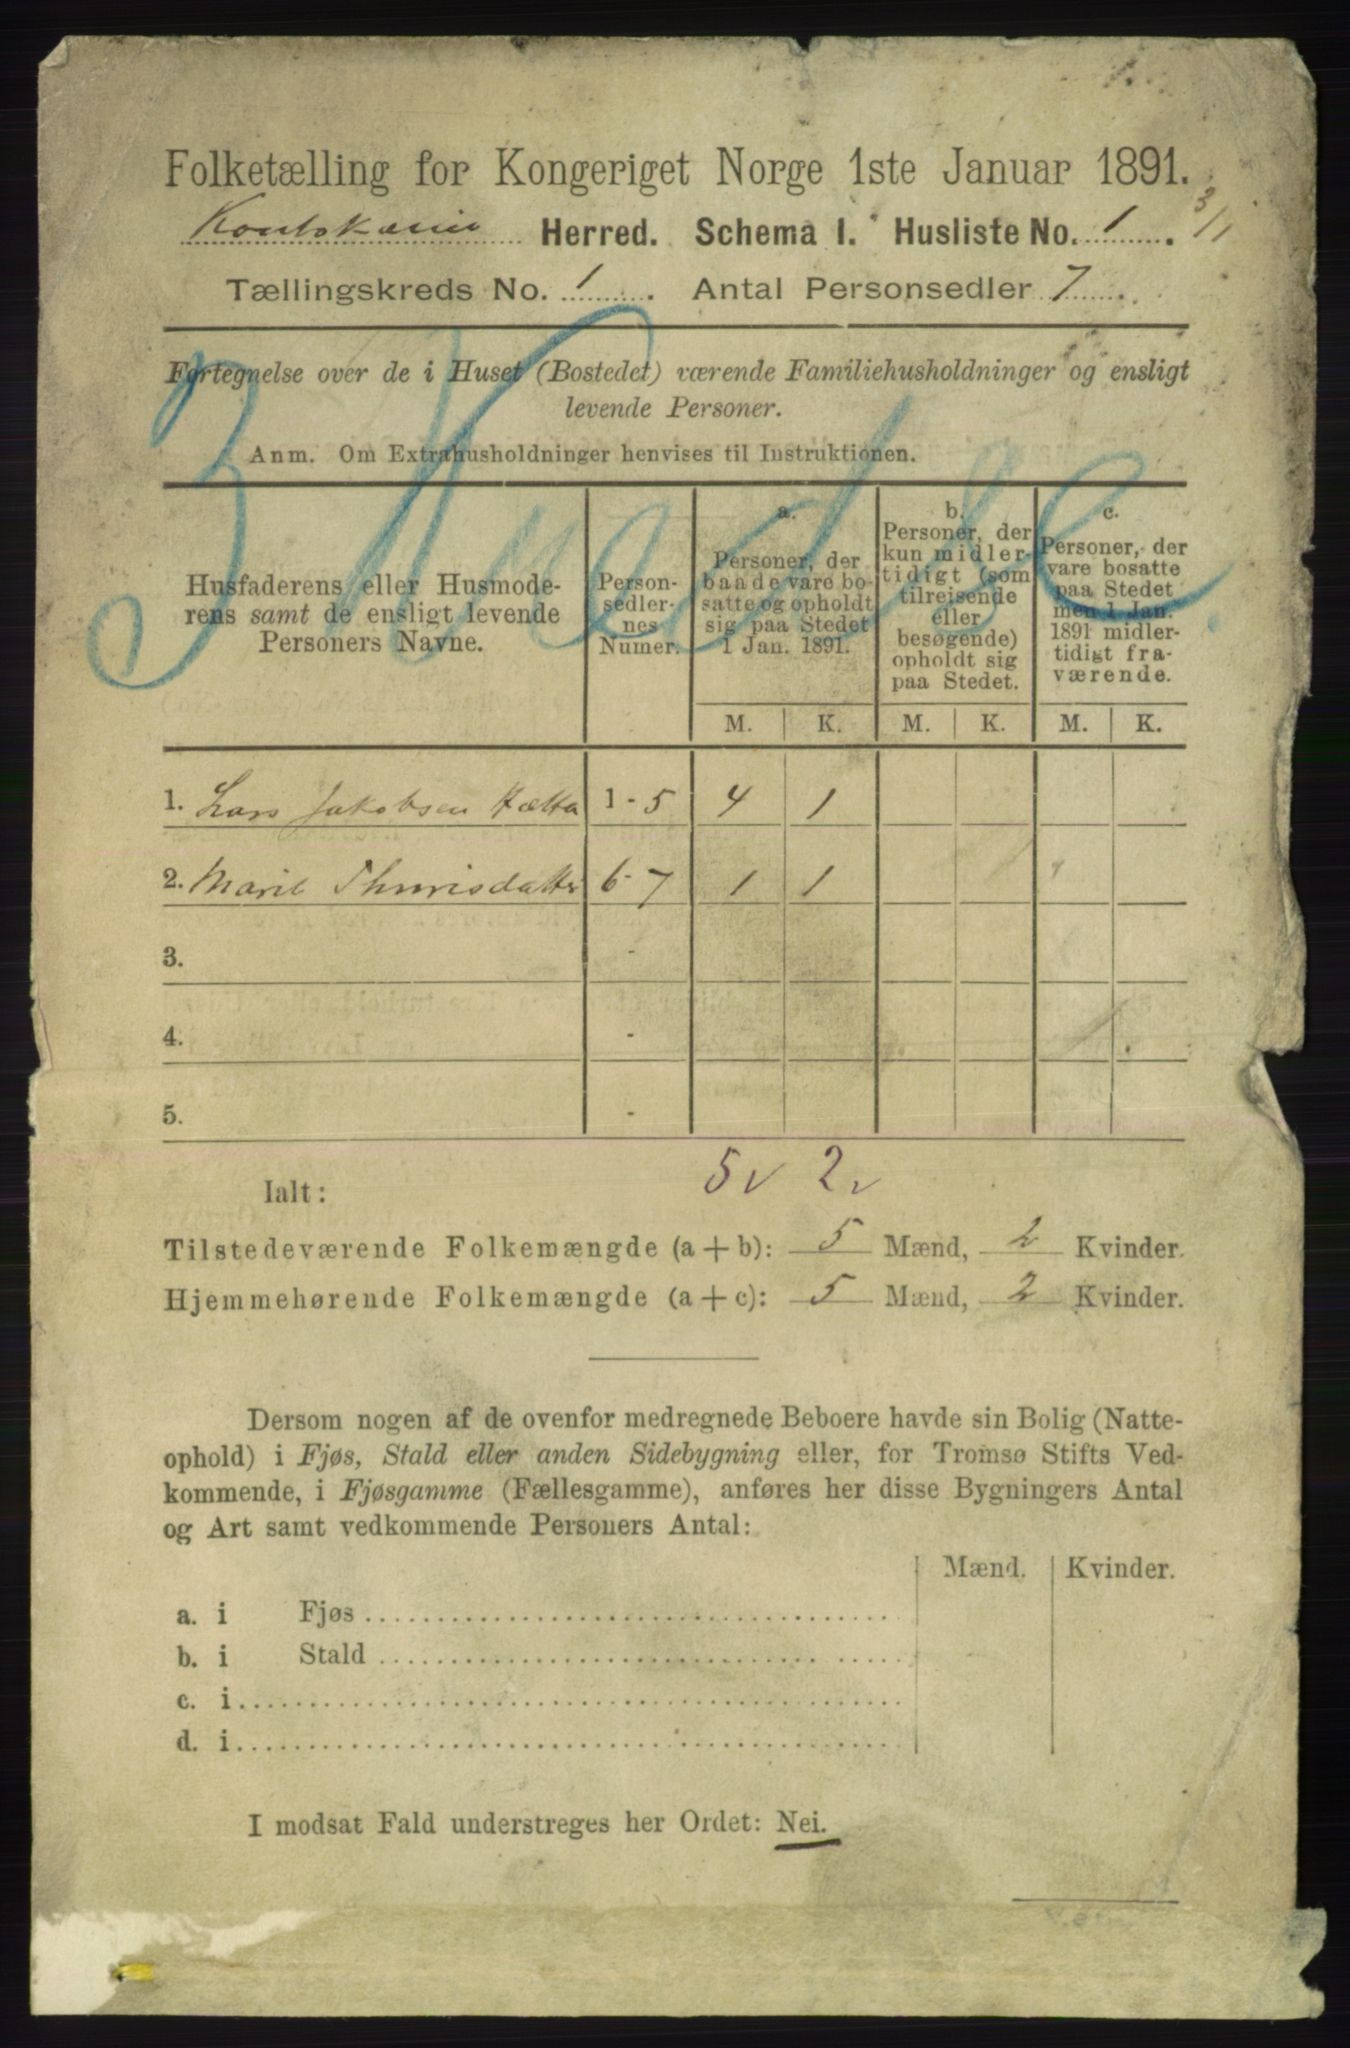 Folketælling for Kongeriget Norge 1ste Januar 1891.
Koutokæino Herred. Schema I. Husliste No. 1. 3/1
Tællingskreds No. 1. Antal Personsedler 7.
Fortegnelse over de i Huset (Bostedet) værende Familiehusholdninger og ensligt
levende Personer.
Anm. Om Extrahusholdninger henvises til Instruktionen.
Husfaderens eller Husmode-
rens samt de ensligt levende
Personers Navne.
Person-
sedler-
nes
Numer.
a.
Personer, der
baade vare bo-
satte og opholdt
sig paa Stedet
1 Jan. 1891.
b.
Personer, der
kun midler-
tidigt (som
tilreisende
eller
besøgende)
opholdt sig
paa Stedet.
c.
Personer, der
vare bosatte
paa Stedet
men 1 Jan.
1891 midler-
tidigt fra-
værende.
M. K. M. K. M. K.
1. Lars Jakobsen Hætta 1 - 5 4 1
2. Marit Thurisdatter 6 - 7 1 1
3. -
4. -
5. -
5 v 2 v
Ialt:
Tilstedeværende Folkemængde (a + b): 5 Mænd, 2 Kvinder.
Hjemmehørende Folkemængde (a + c): 5 Mænd, 2 Kvinder.
Dersom nogen af de ovenfor medregnede Beboere havde sin Bolig (Natte-
ophold) i Fjøs, Stald eller anden Sidebygning eller, for Tromsø Stifts Ved-
kommende, i Fjøsgamme (Fællesgamme), anføres her disse Bygningers Antal
og Art samt vedkommende Personers Antal:
Mænd. Kvinder.
a. i Fjøs
b. i Stald
c. i
d. i
I modsat Fald understreges her Ordet: Nei.